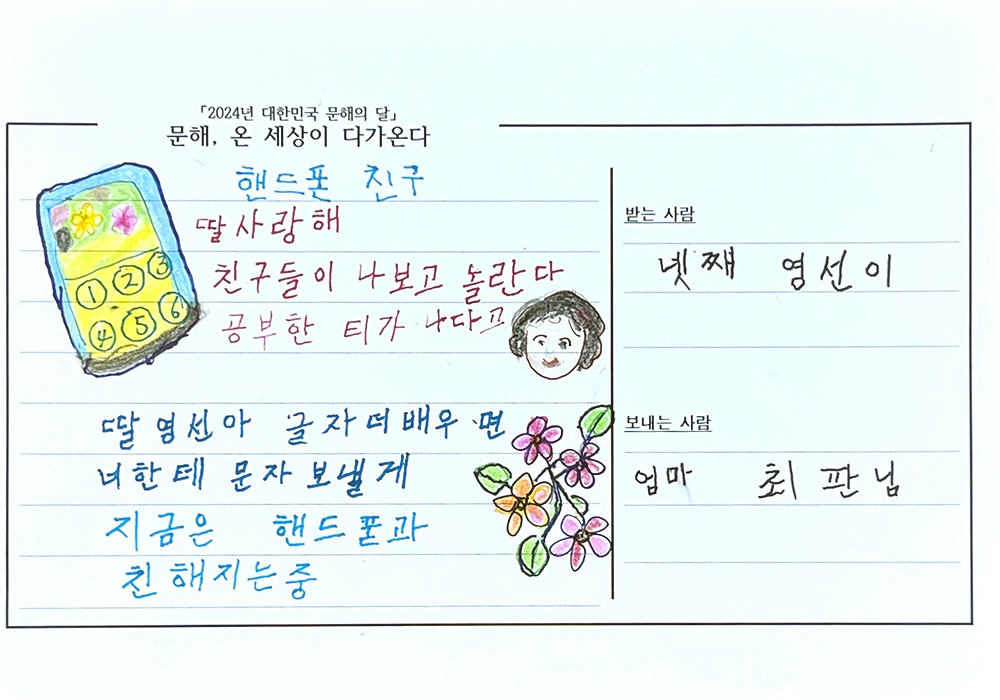 「2024년 대한민국 문해의 달」
문해, 온 세상이 다가온다
핸드폰 친구
딸사랑해
친구들이 나보고 놀란다
공부한 티가 나다고
딸 영선아 글자 더 배우면
너한테 문자 보낼게
지금은 핸드폰과
친해지는중
1 2 3
4 5 6
받는 사람
넷째 영선이
보내는 사람
엄마 최판님